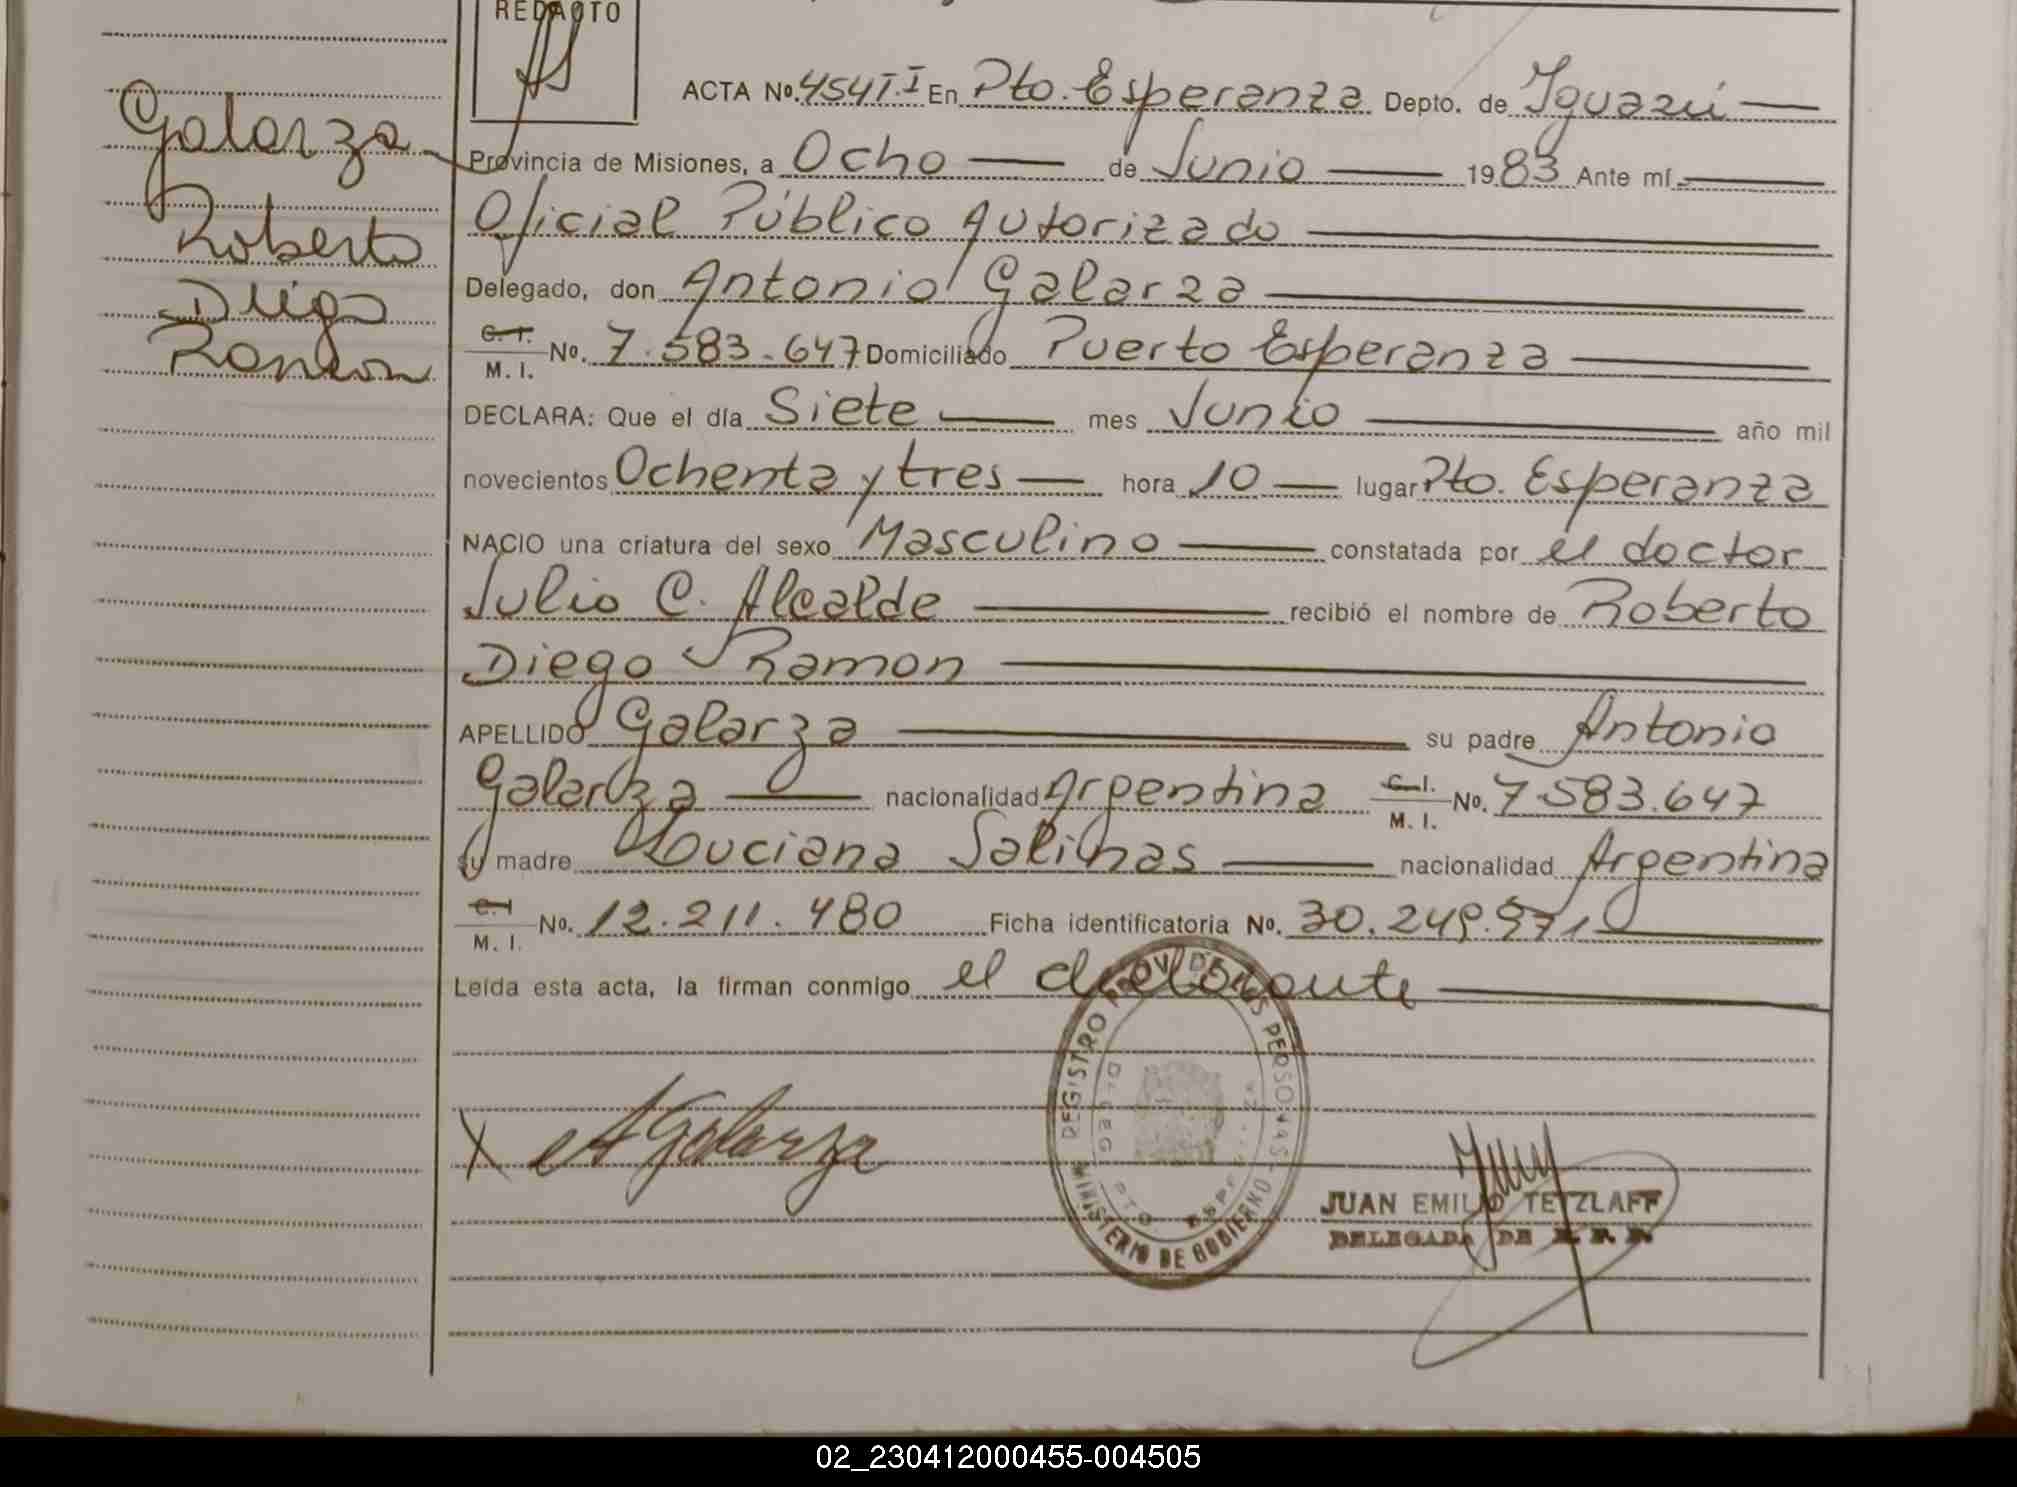 REDACTO
ACTA Nº. 454 T. I En Pto. Esperanza Depto. de Iguazú
Provincia de Misiones, a Ocho de Junio 1983 Ante mí
Oficial Público Autorizado
Delegado, don Antonio Galarza
C. I. M. I. No. 7.583.647 Domiciliado Puerto Esperanza
DECLARA: Que el día Siete mes Junio año mil
novecientos Ochenta y tres hora 10 lugar Pto. Esperanza
NACIO una criatura del sexo Masculino constatada por el doctor
Julio C. Alcalde recibió el nombre de Roberto
Diego Ramon
APELLIDO Galarza su padre Antonio
Galarza nacionalidad Argentina C. I. M. I. No. 7.583.647
su madre Luciana Salinas nacionalidad Argentina
C. I. M. I. No. 12.211.480 Ficha identificatoria No. 30.249.571
Leída esta acta, la firman conmigo el declarante
Galarza
Roberto
Diego
Ramon
A Galarza
REGISTRO PROV. DE LAS PERSONAS
MINISTERIO DE GOBIERNO
DELEG. PTO. ESPE
JUAN EMILIO TETZLAFF
DELEGADA DE R. P. P.
02_230412000455-004505